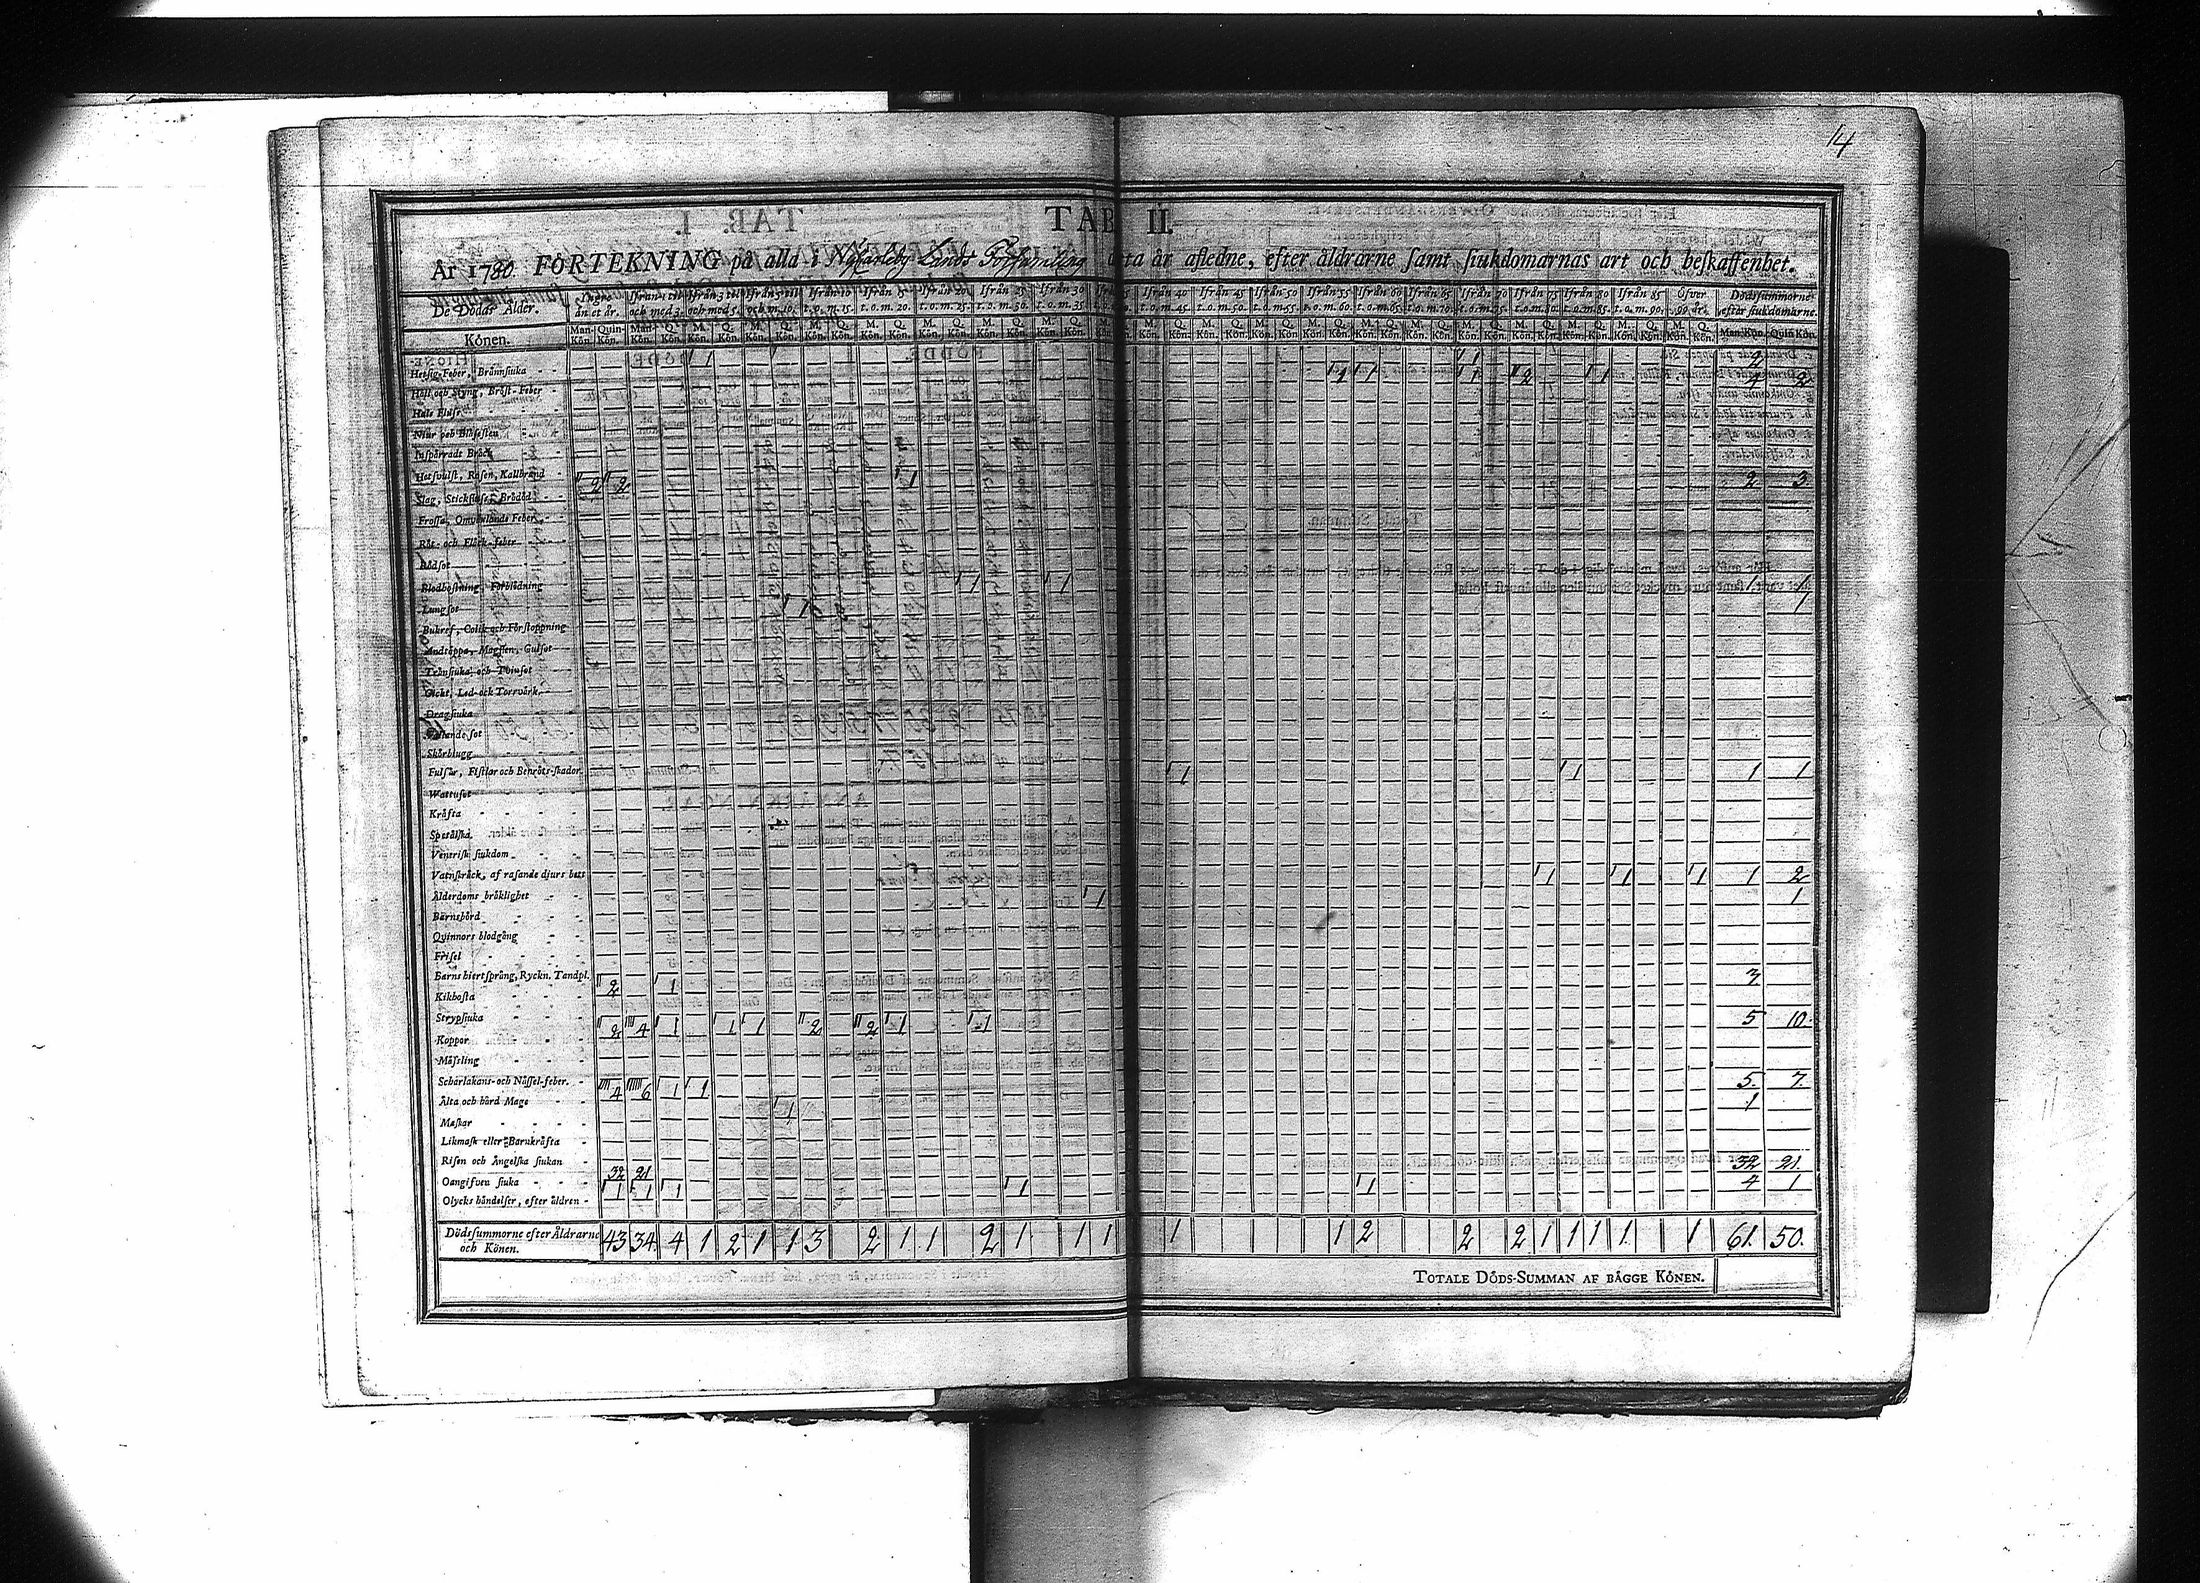 14
TAB. II.
År 1780. FÖRTEKNING på alla i Nykarleby Lands Församling detta år afledne, efter åldrarne samt siukdomarnas art och beskaffenhet.
De Dödas Ålder. Ifrån 1 til och med 3. Ifrån 3 til och med 5. Ifrån 5 til och m. 10. Ifrån 10 t. o. m. 15. Ifrån 15 t. o. m. 20. Ifrån 20 t. o. m. 25. Ifrån 25 t. o. m. 30. Ifrån 30 t. o. m. 35 Ifrån 40 t. o. m. 45. Ifrån 45 t. o. m. 50. Ifrån 50 t. o. m. 55. Ifrån 55 t. o. m. 60. Ifrån 60 t. o. m. 65. Ifrån 65 t. o. m. 70. Ifrån 70 t. o. m. 75. Ifrån 75 t. o. m. 80. Ifrån 80 t. o. m. 85. Ifrån 85 t. o. m. 90. Öfver 90 år. Dödssummorne efter siukdomarne.
Könen. Man-Kön. Quin-Kön. Man-Kön. Q. Kön. M. Kön. Q. Kön. Man-Kön. Quin-Kön.
Hetsig Feber, Brännsiuka 1 1 2
Håll och Styng, Bröst-Feber 1 1 1 2 1 4 2
Hals Fluss
Niur och Blåsesten
Inspärradt Bråck
Hetsvulst, Rosen, Kallbrand
Slag, Stickfluss, Brådöd 2 2 1 2 3
Frossa, Omväxlande Feber
Röt- och Fläck-feber
Rödsot
Blodhostning, Förblödning 1 1 1 1
Lungsot 1 1
Bukref, Colik och Förstoppning
Andtäppa, Magsten, Gulsot
Tränsiuka, och Tvinsot
Gickt, Led-ock Torrvärk
Dragsiuka
Fallande sot
Skörbiugg
Fulslår, Fistlar och Benröts-skador
Wattusot 1 1 1 1
Kräfta
Spetälska
Venerisk siukdom
Vatnskräck, af rasande djurs bett
Ålderdoms bräklighet 1 1 1 1 2
Barnsbörd 1 1
Quinnors blodgång
Frisel
Barns hiertsprång, Ryckn. Tandpl.
Kikhosta 2 1 3
Strypsiuka
Koppor 2 4 1 1 1 2 2 1 1 5 10.
Mässling
Scharlakans-och Nässel-feber.
Älta och hård Mage 4 6 1 1 5. 7.
Maskar 1 1
Likmask eller Barnkräfta
Risen och Ångelska siukan
Oangifven siuka 32 21 32 21.
Olycks händelser, efter äldren 1 1 1 1 1 4 1
Dödssummorne efter Åldrarne och Könen. 43 34 4 1 2 1 1 3 2 1 1 2 1 1 1 1 1 2 2 2 1 1 1 1 1 61. 50.
TOTALE DÖDS-SUMMAN AF BÄGGE KÖNEN.